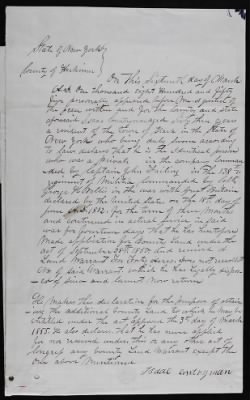 State of New York
County of Herkimer
On this Sixteenth day of March
A.D. One thousand eight Hundred and fifty
five personally appeared before me a Justice of
the peace within and for the County and State
aforesaid Isaac aged Sixty three years
a resident of the town of in the State of
New York who being duly Sworn according
to law declares that he is the identical person
who was a private in the company
ed by Captain John in the 138th
regiment of Militia Commanded by
George H in the war with great Britain
declared by the United States on the 18th day of
June 1812 for the term of
and continued in actual Service in said
war for fourteen days that he has heretofore
Made application for bounty land under the
act of September 28th 1850 and received a
Land Warrant for forty acres does not recollect
No of Said Warrant which he has legally dispos
ed of Since and cannot now return
He makes this declaration for the purpose of obtain
ing the additional bounty Land to which he may be
entitled under the act approved the 3d day of March
1855. He also declares that he has never applied
for nor received under this or any other act of
Congress any bounty Land Warrant except the
one above Mentioned
Isaac